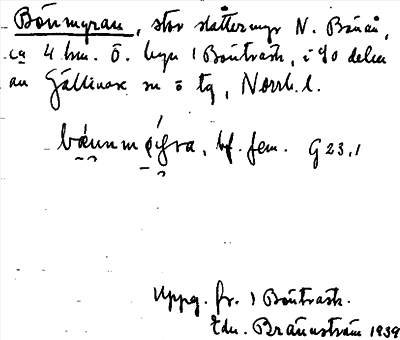 Bönmyran, stor slåttermyr N. Bönån,
ca 4 km. Ö. byn 1 Bönträsk, i SO delen
av Gällivare sn o tg, Norrb. l.
bf. fem. G 23,1
Uppg. fr. 1 Bönträsk.
Edv. Brännström 1939